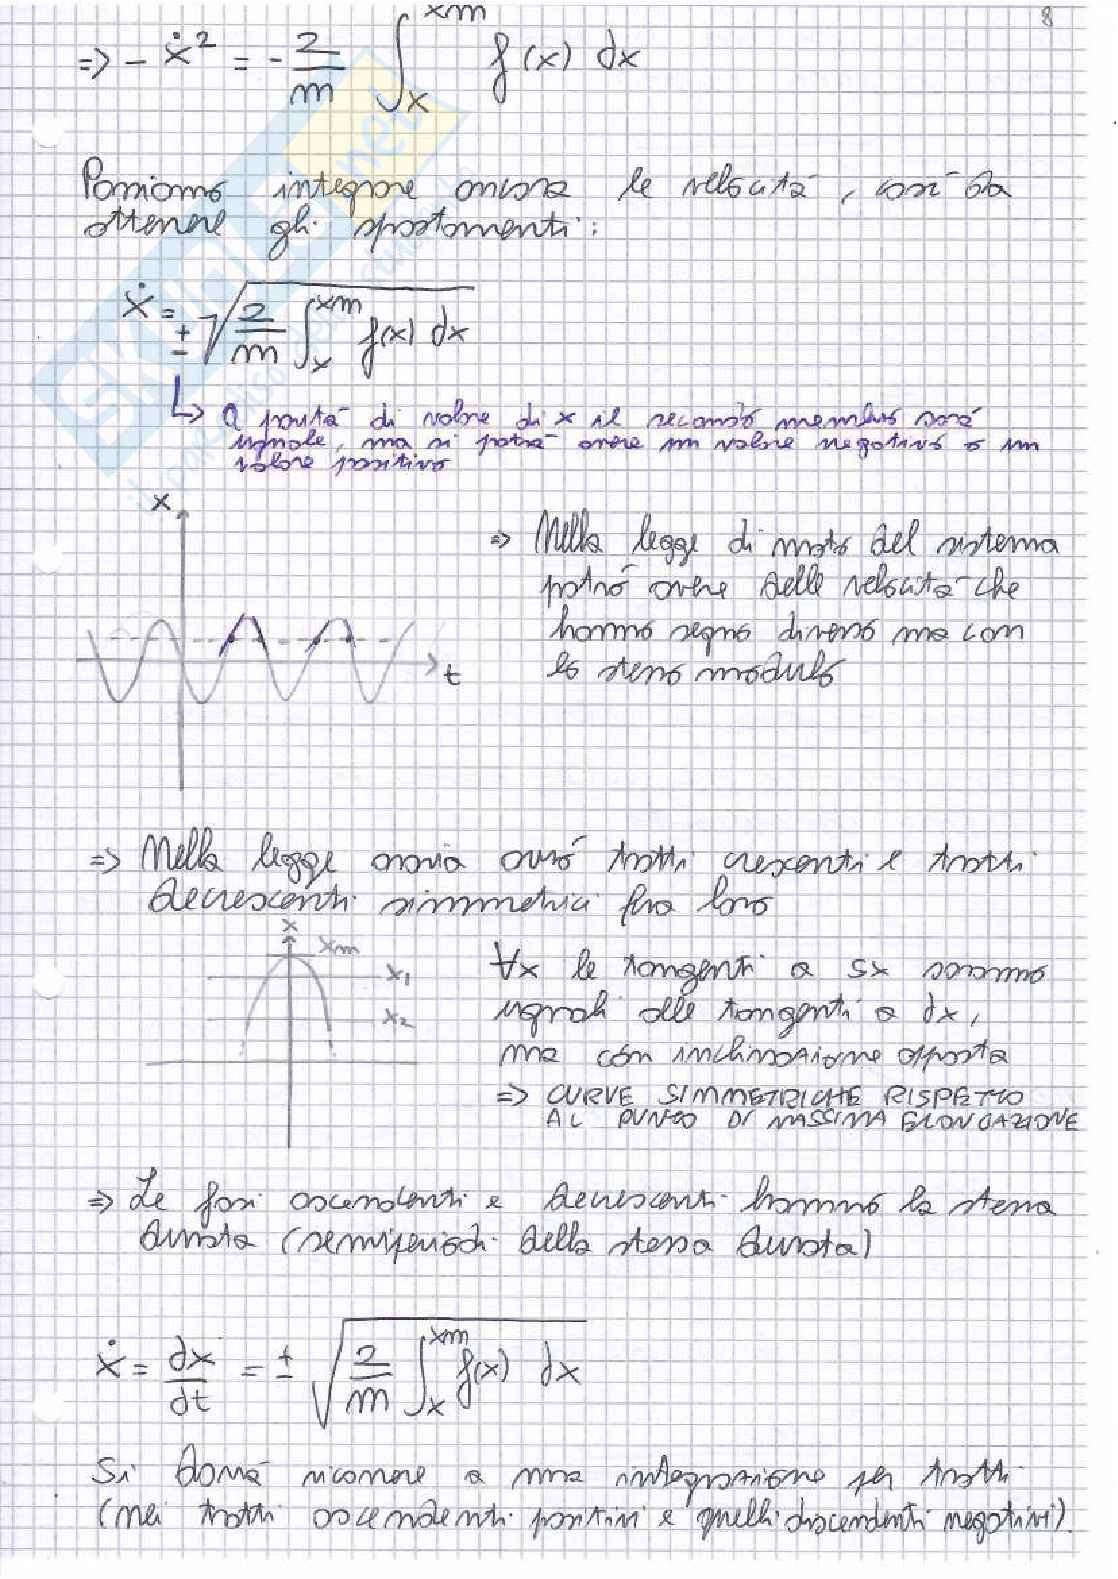 8
=> - ẋ² = - 2/m ∫ₓ^xm f(x) dx
Possiamo integrare ancora le velocità, così da
ottenere gli spostamenti:
ẋ = ± √(2/m ∫ₓ^xm f(x) dx)
↳ A parità di valore di x il secondo membro sarà
uguale, ma si potrà avere un valore negativo o un
valore positivo
x
t
=> Nella legge di moto del sistema
potrò avere delle velocità che
hanno segno diverso ma con
lo stesso modulo
=> Nella legge oraria avrò tratti crescenti e tratti
decrescenti simmetrici fra loro
x
xm
x₁
x₂
∀x le tangenti a sx saranno
uguali alle tangenti a dx,
ma con inclinazione opposta
=> CURVE SIMMETRICHE RISPETTO
AL PUNTO DI MASSIMA ELONGAZIONE
=> Le fasi ascendenti e decrescenti hanno la stessa
durata (semiperiodi della stessa durata)
ẋ = dx/dt = ± √(2/m ∫ₓ^xm f(x) dx)
Si dovrà ricorrere a una integrazione per tratti
(nei tratti ascendenti positivi e quelli discendenti negativi).